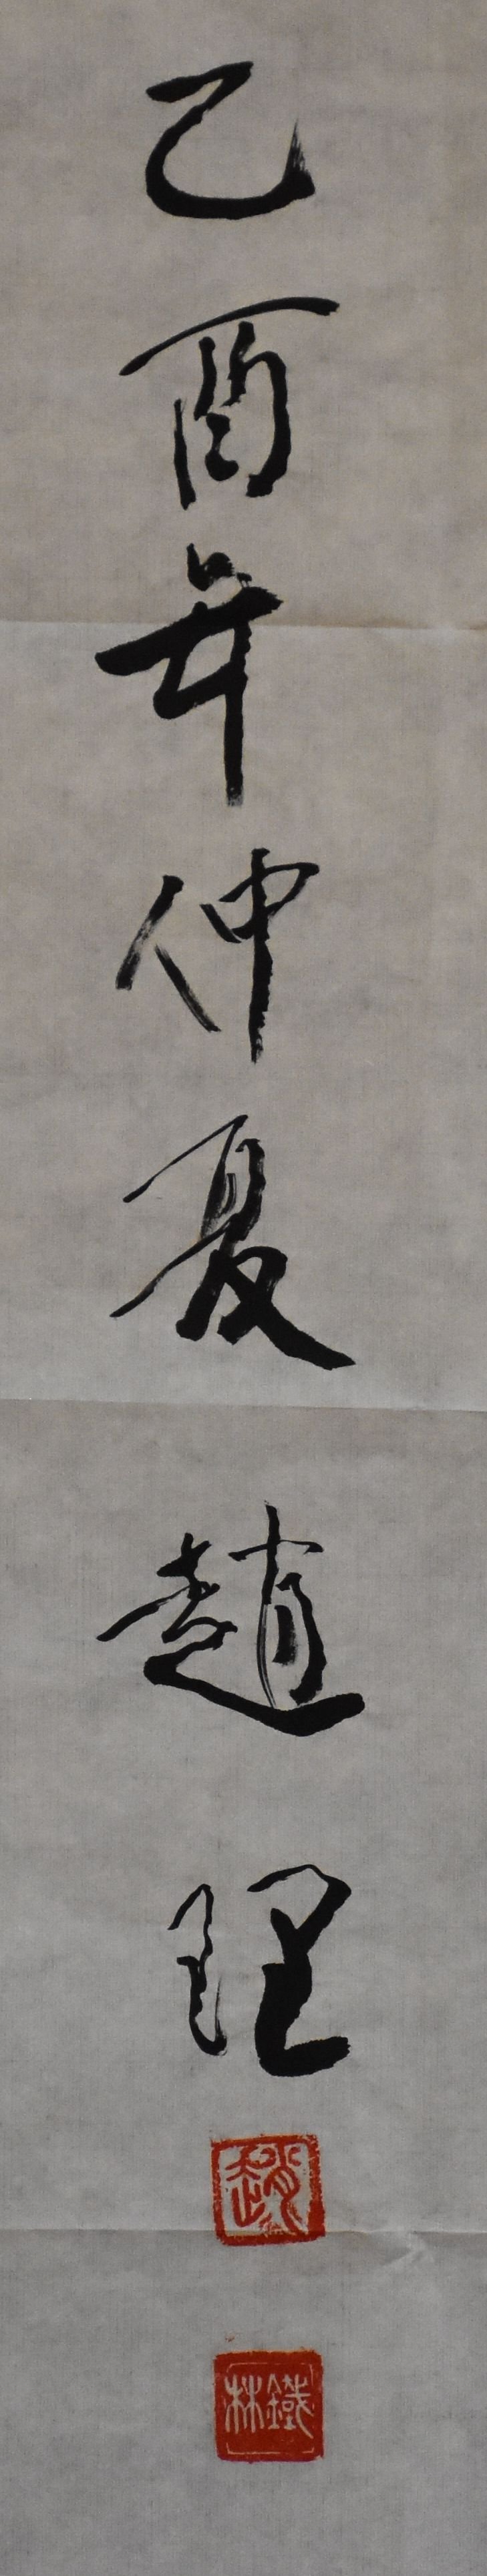 己酉年仲夏 趙理
趙
鐵林